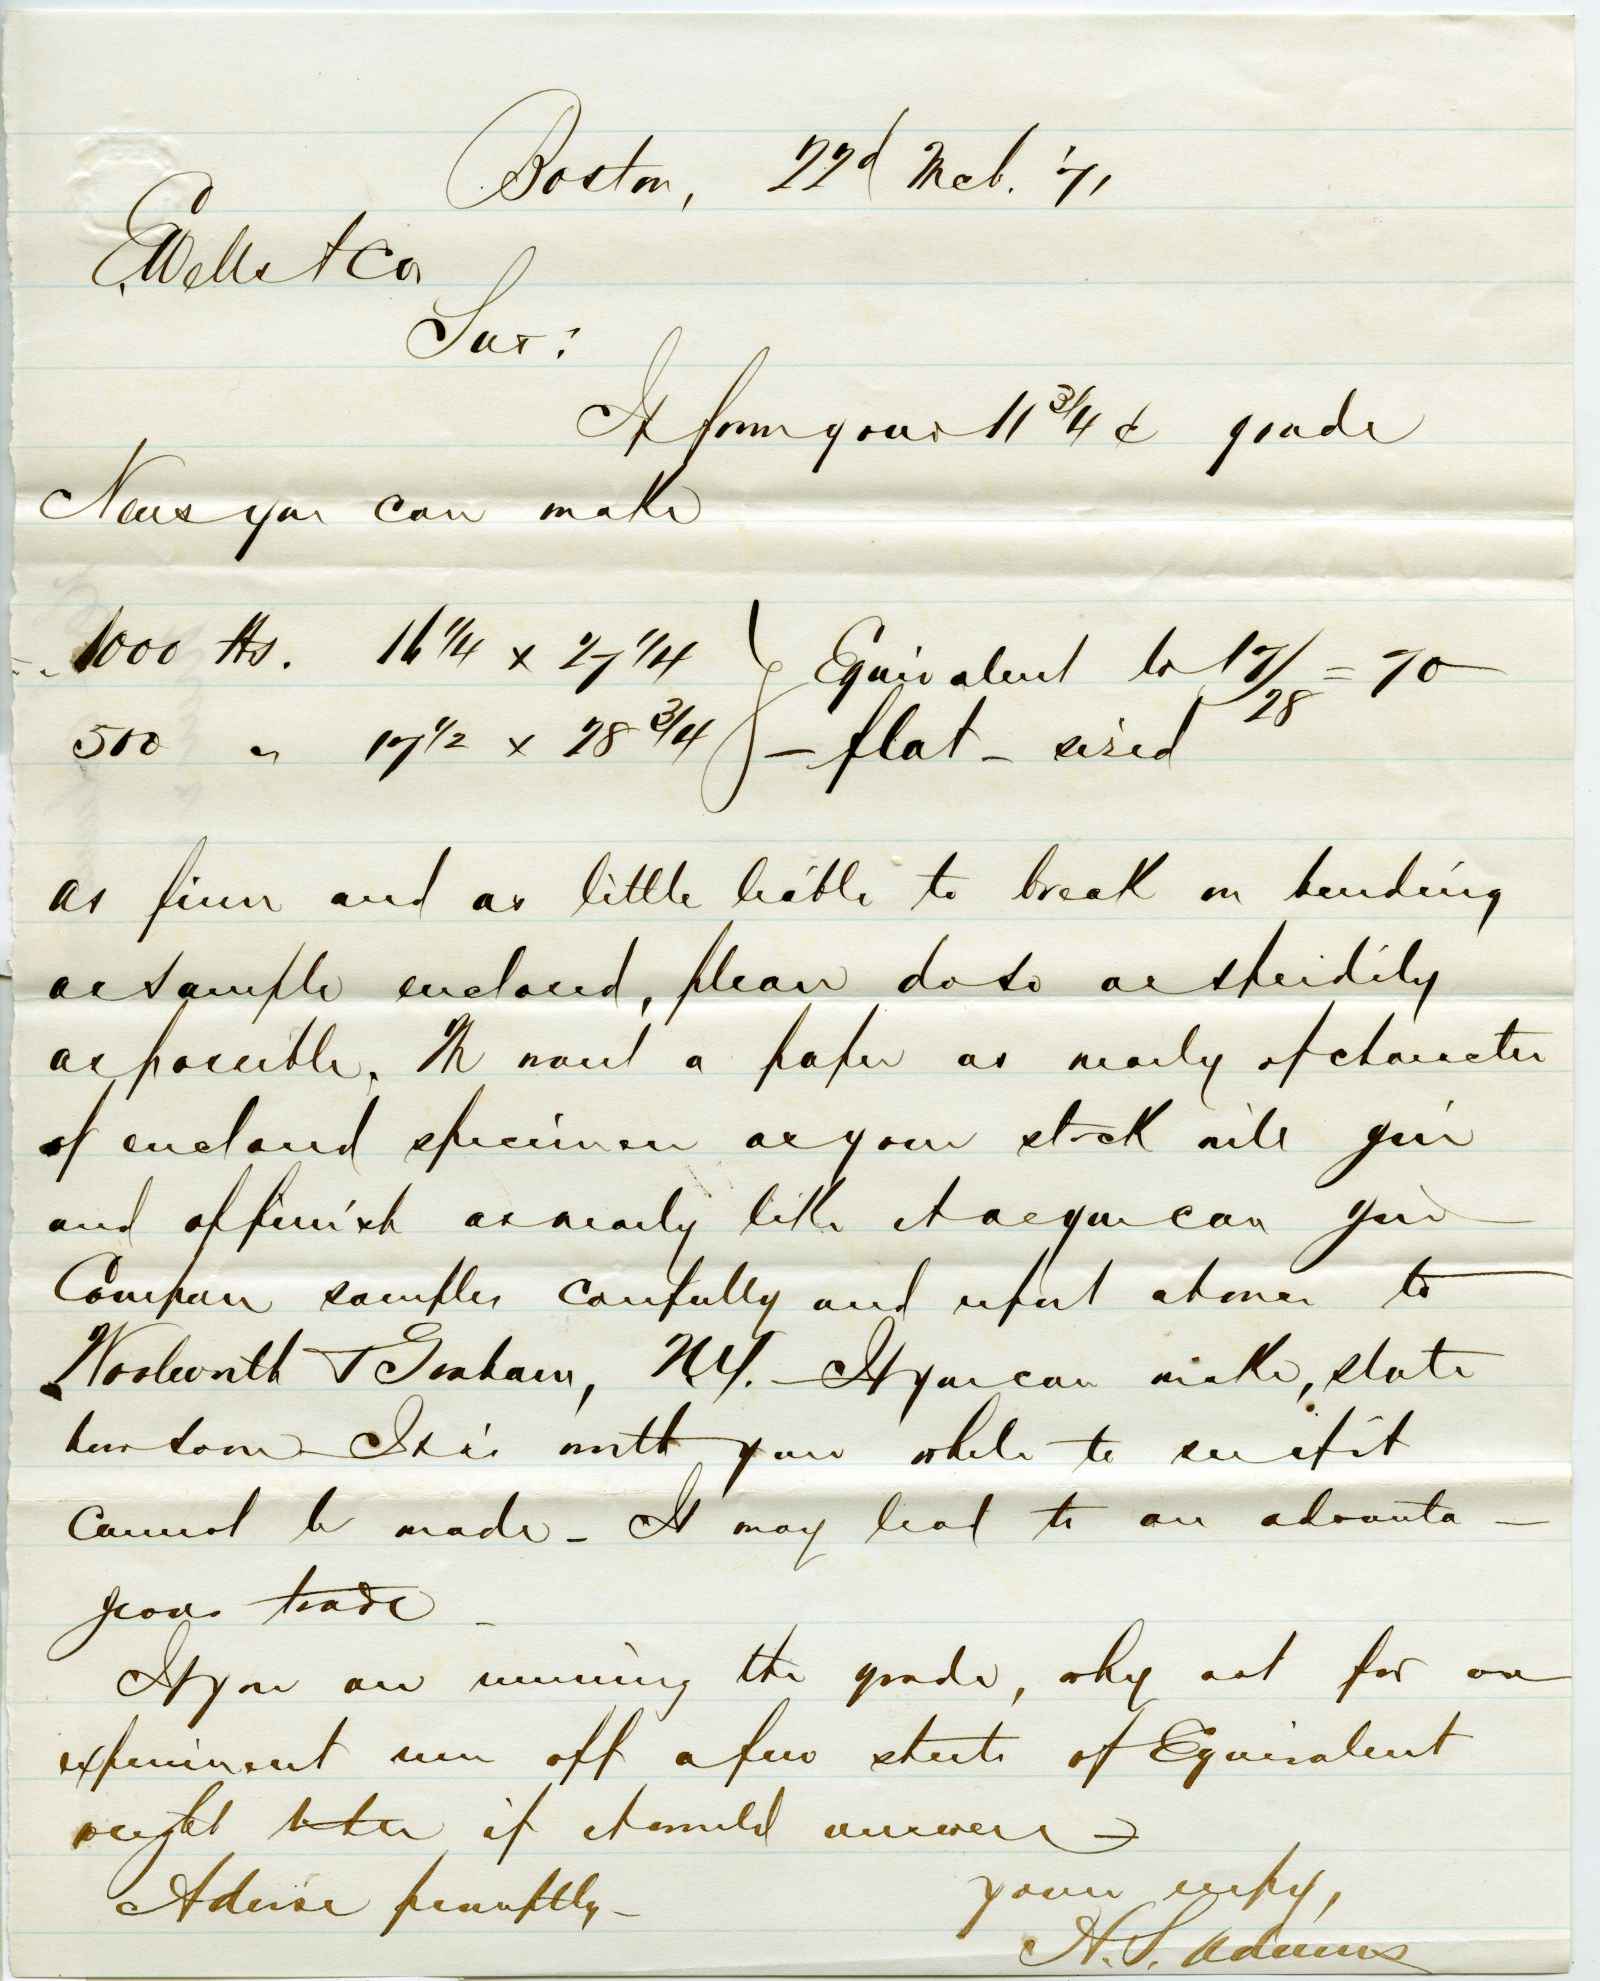 Boston, 22d Mch. '71
E. Wells & Co
Sirs:
If from your 11 3/4 ¢ grade
News you can make
1000 lbs. 16 1/4 x 27 1/4 } Equivalent to 17/28 = 70
500 " 17 1/2 x 28 3/4 } - flat - sized
as firm and as little liable to break on bending
as sample enclosed, please do so as speedily
as possible. We want a paper as nearly of character
of enclosed specimen as your stock will give
and of finish as nearly like it as you can give
Compare samples carefully and report at once to
Woolworth & Graham, N.Y. - If you can make, state
how soon - It is worth your while to see if it
cannot be made - It may lead to an advanta -
geous trade -
If you are running the grade, why not for an
experiment run off a few sheets of Equivalent
weight to see if it would answer -
Advise promptly -
yours respy,
H. S. Adams